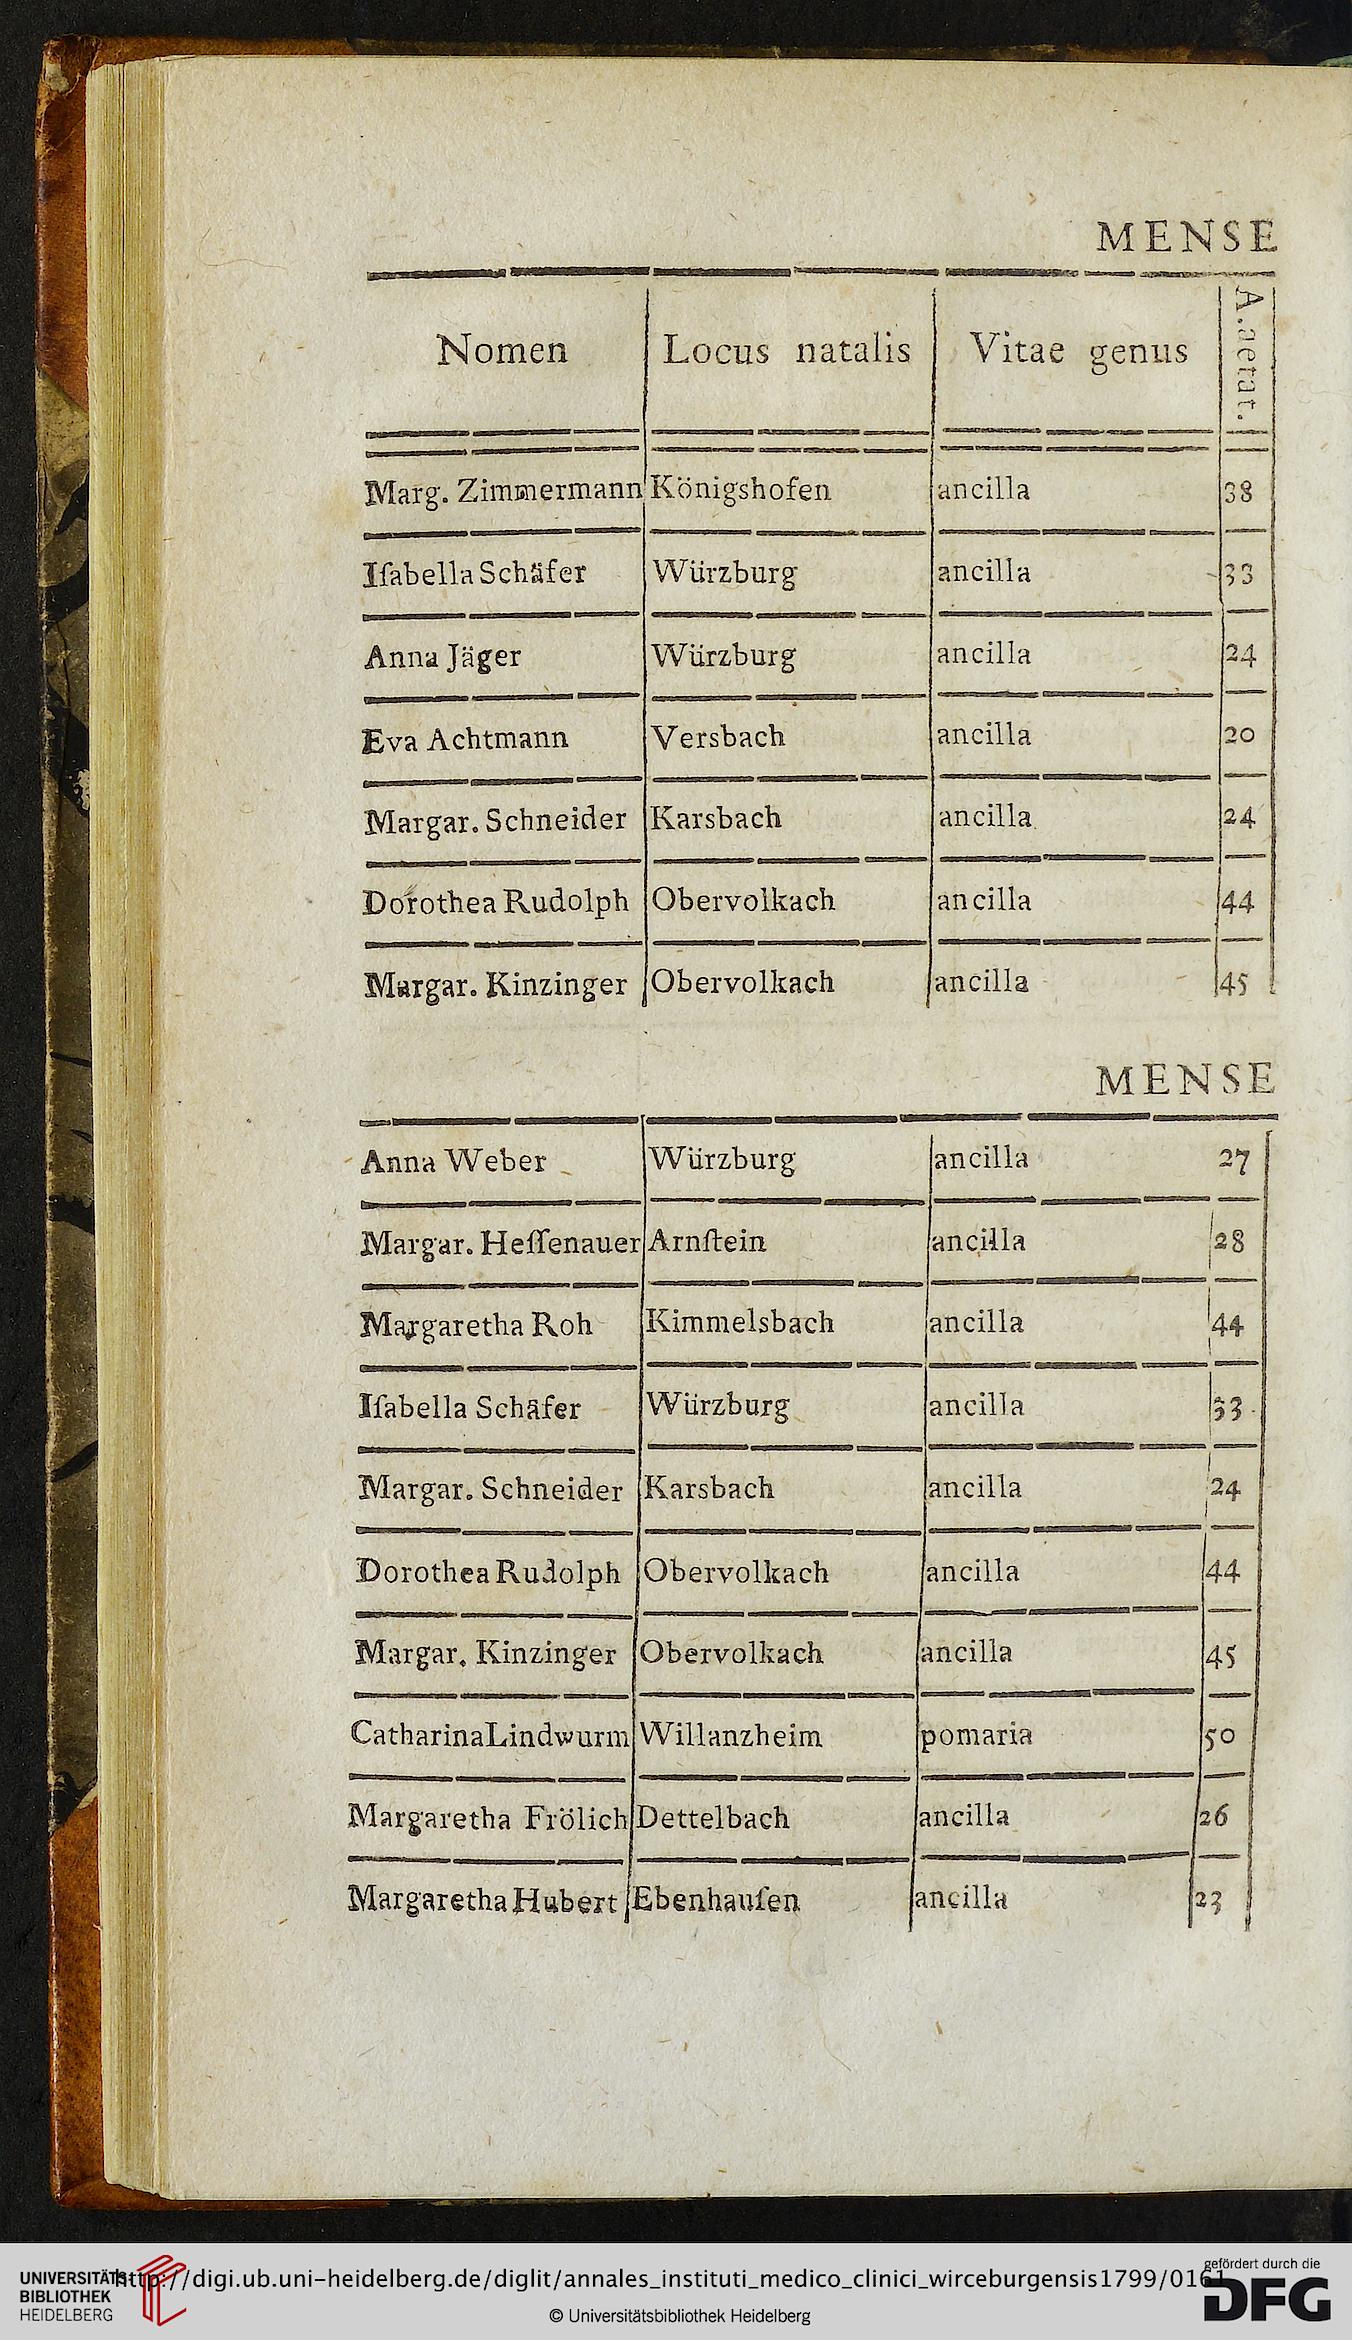 MENSE
Nomen Locus natalis Vitae genus A. aetat.
Marg. Zimmermann Königshofen ancilla 38
Iſabella Schäfer Würzburg ancilla 33
Anna Jäger Würzburg ancilla 24
Eva Achtmann Versbach ancilla 20
Margar. Schneider Karsbach ancilla 24
Dorothea Rudolph Obervolkach ancilla 44
Margar. Kinzinger Obervolkach ancilla 45
MENSE
Anna Weber Würzburg ancilla 27
Margar. Heſſenauer Arnſtein ancilla 28
Margaretha Roh Kimmelsbach ancilla 44
Iſabella Schäfer Würzburg ancilla 33
Margar. Schneider Karsbach ancilla 24
Dorothea Rudolph Obervolkach ancilla 44
Margar. Kinzinger Obervolkach ancilla 45
Catharina Lindwurm Willanzheim pomaria 50
Margaretha Frölich Dettelbach ancilla 26
Margaretha Hubert Ebenhauſen ancilla 23
UNIVERSITÄTS-
BIBLIOTHEK
HEIDELBERG
http://digi.ub.uni-heidelberg.de/diglit/annales_instituti_medico_clinici_wirceburgensis1799/0161
© Universitätsbibliothek Heidelberg
gefördert durch die
DFG